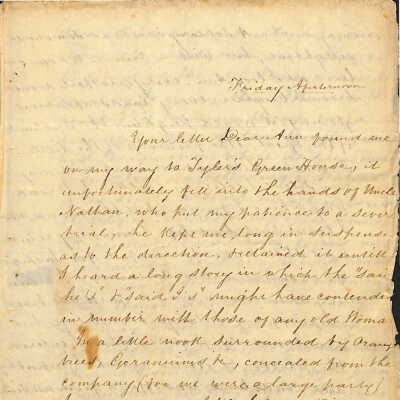 Friday Afternoon
Your letter Dear Ann found me
on my way to Tyler's Green House; it
unfortunately fell into the hands of Uncle
Nathan, who put my patience to a sever
trial, he kept me long in suspense
as to the direction, & retained it untill
I heard a long story in which the "said
he's" & "said I's" might have contende
in number with those of any old Woma
In a little nook surrounded by Orang
trees, Geraniums &c, concealed from the
company (for we were a large party)